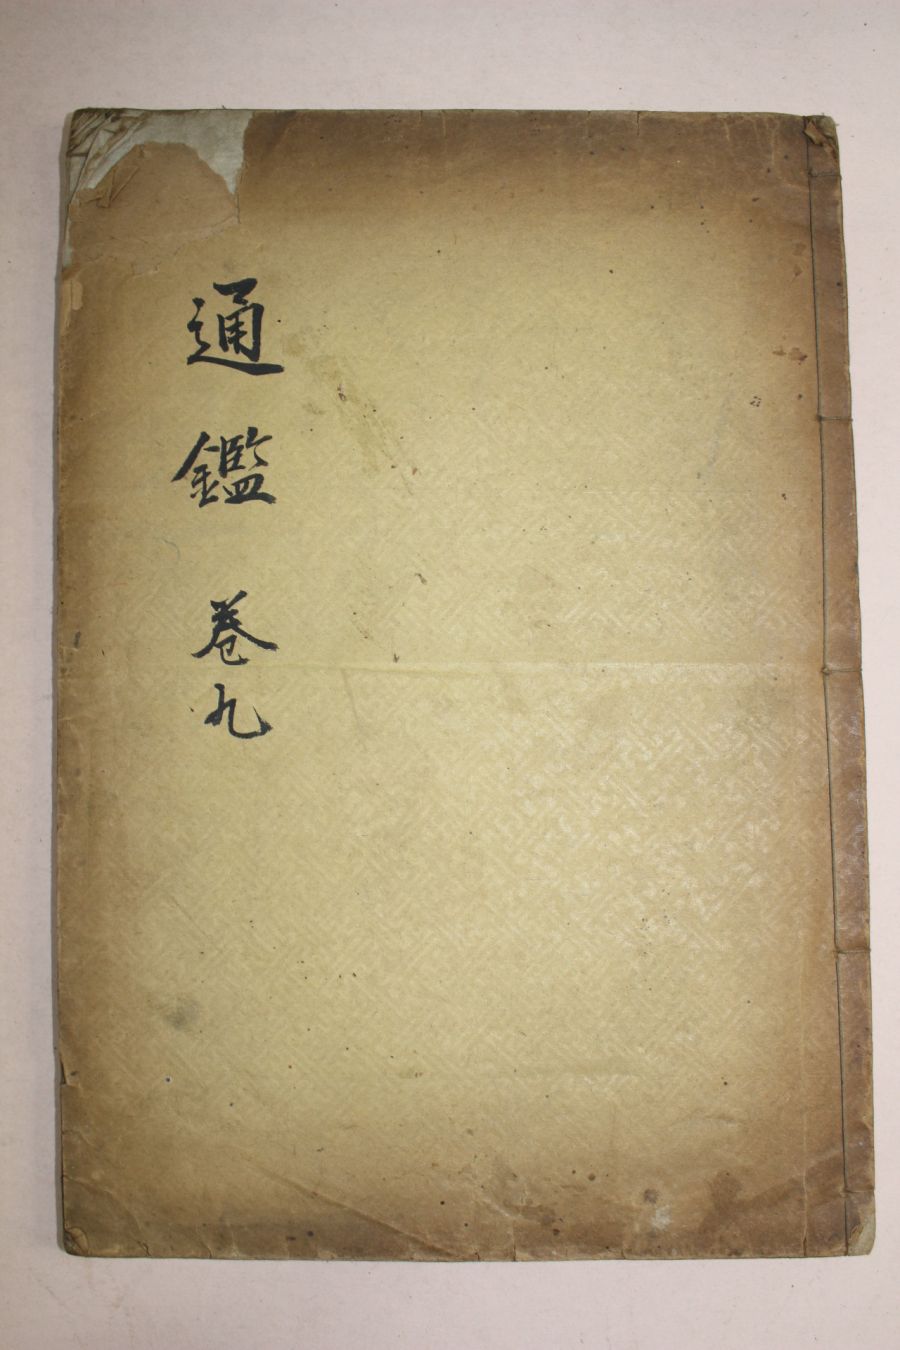 通鑑 卷九